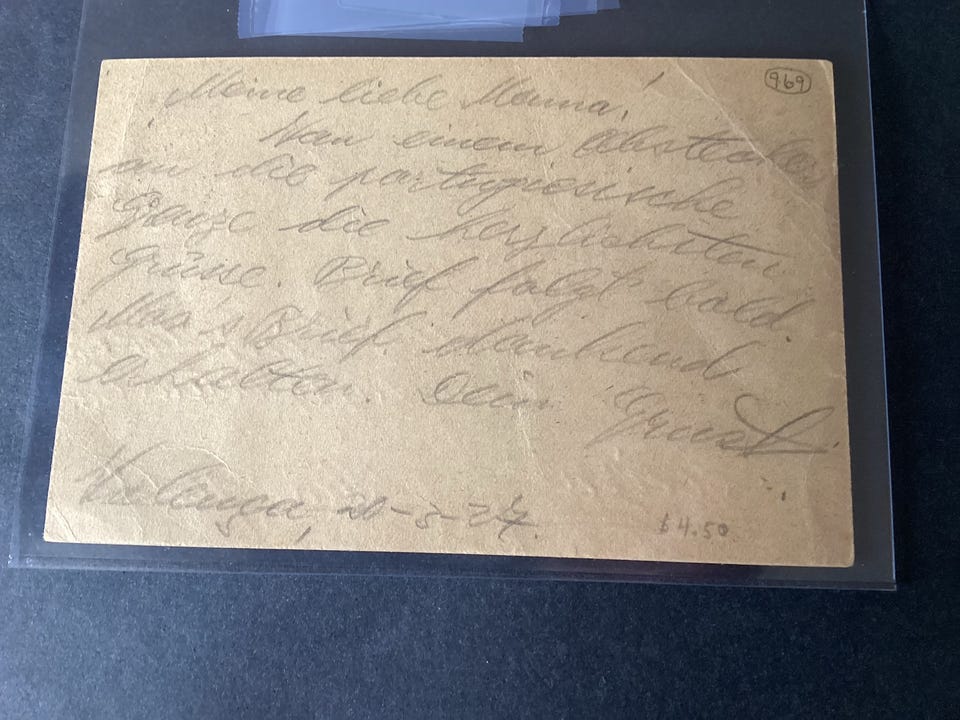 969
Meine liebe Mama!
Von einem Abstecher
an die portugiesische
Grenze die herzlichsten
Grüsse. Brief folgt bald.
Brief dankend
erhalten. Dein Ernst
20-3-27.
$4.50